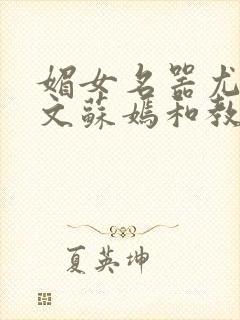 媚女名器尤
文蘇媽和教
夏英坤